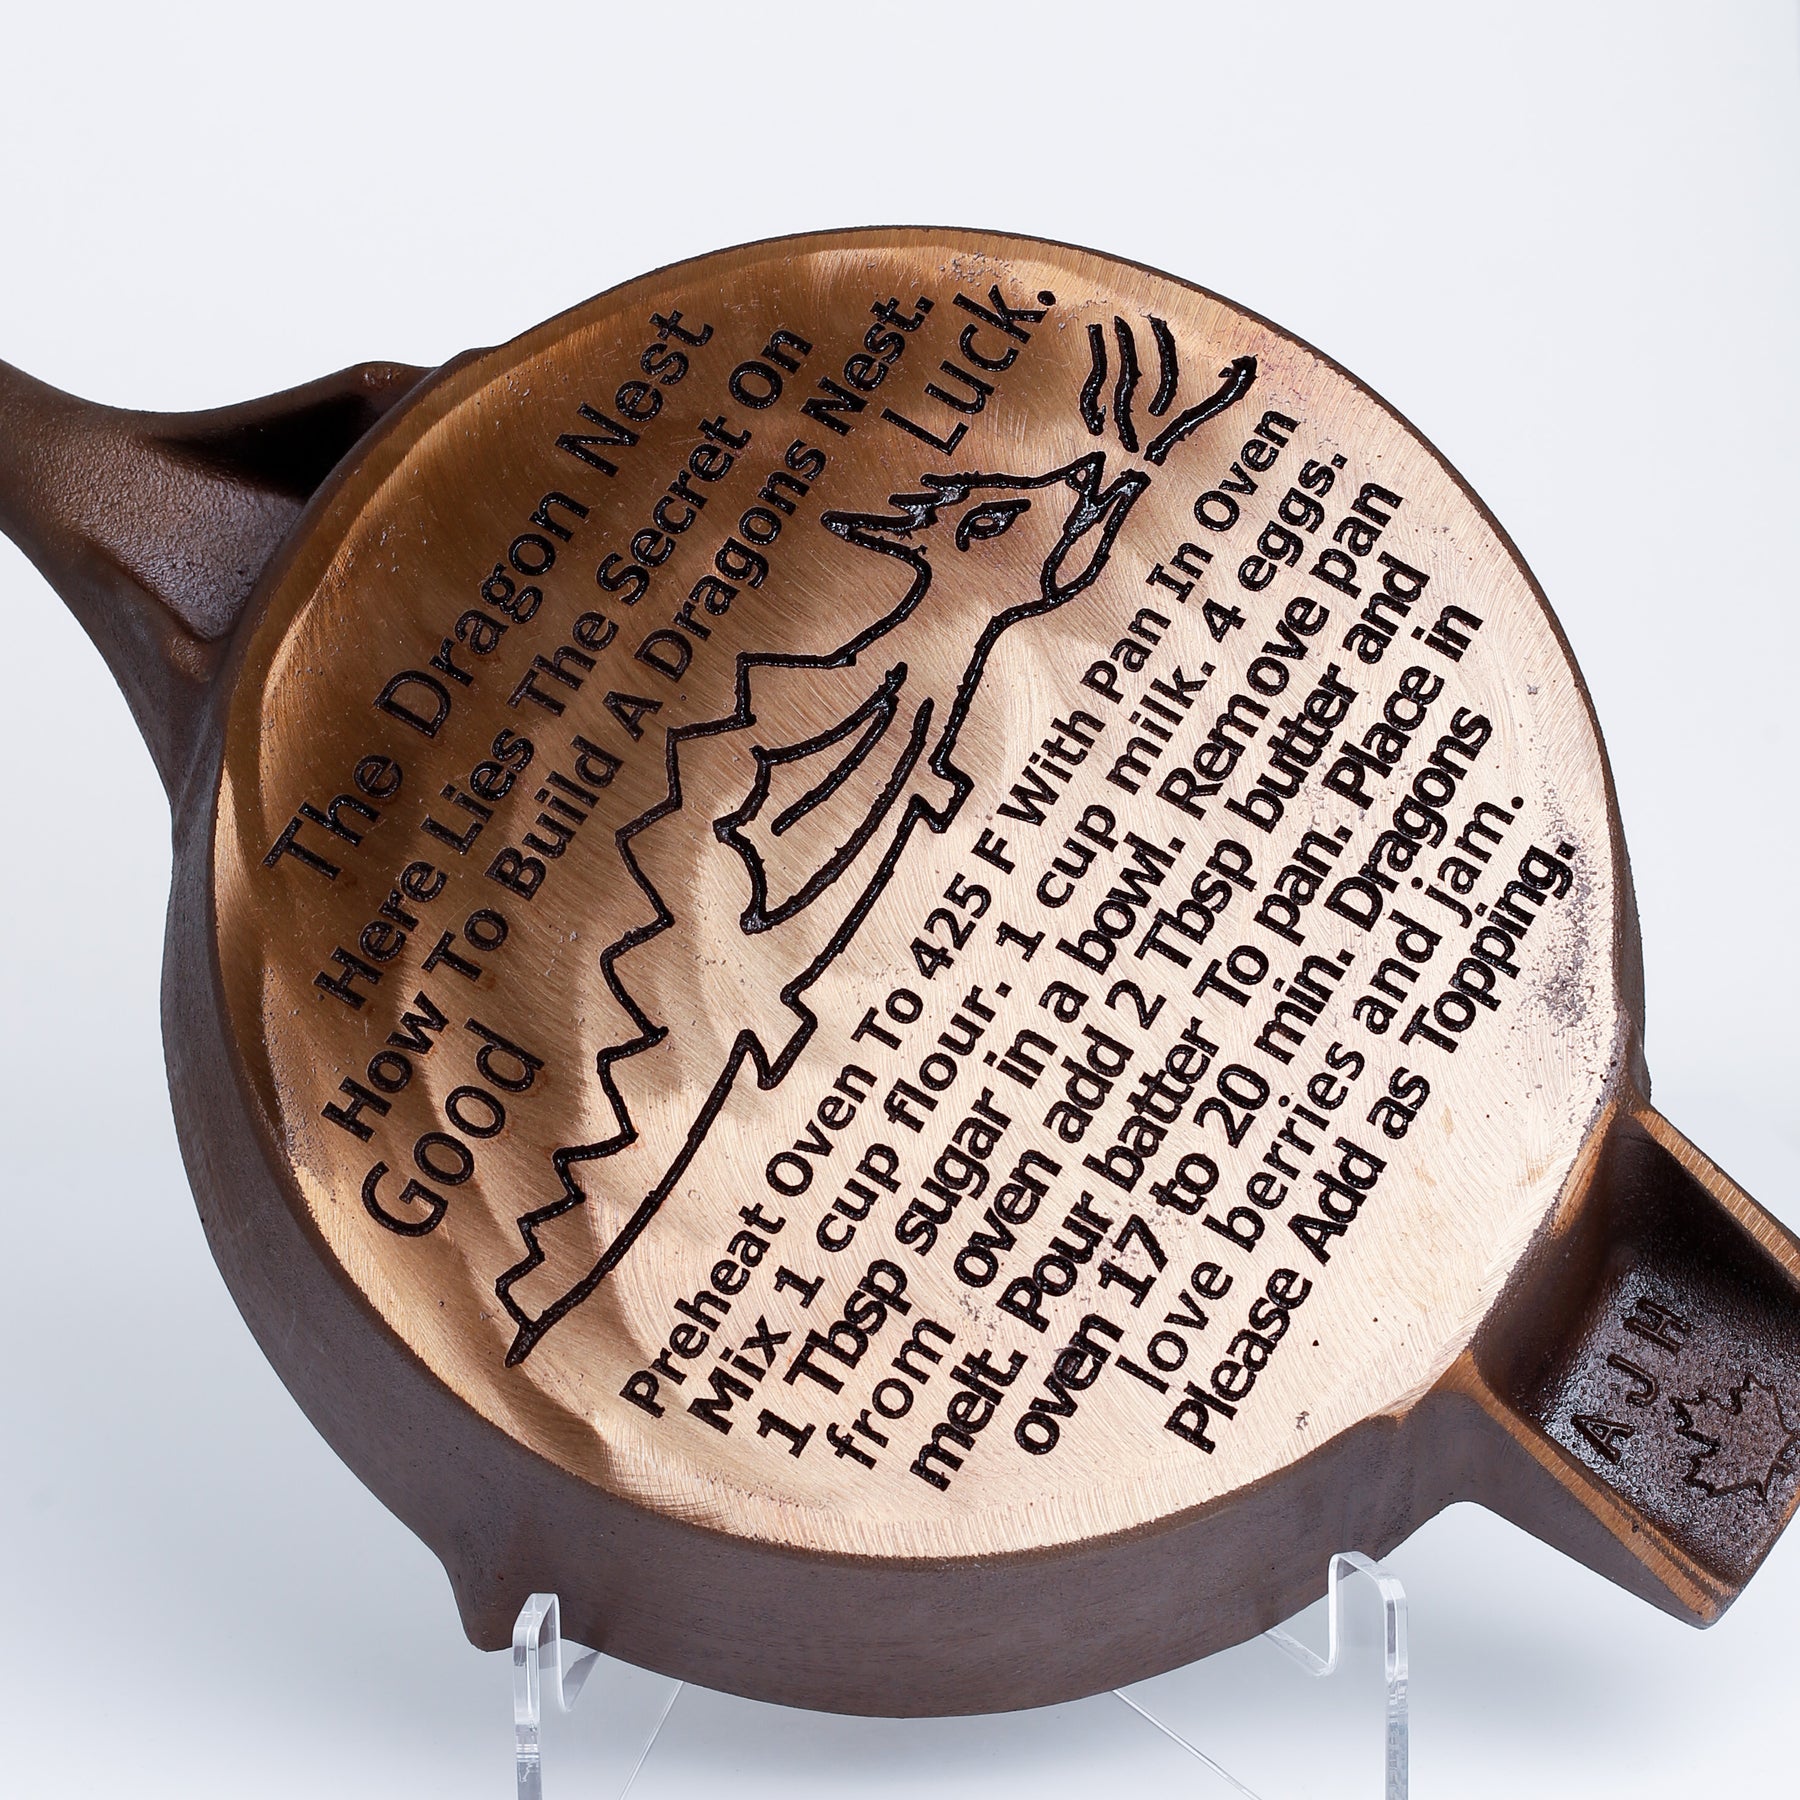 The Dragon Nest
Here Lies The Secret On
How To Build A Dragons Nest.
Good Luck.
Preheat Oven To 425 F With Pan In Oven
Mix 1 cup flour. 1 cup milk. 4 eggs.
1 Tbsp sugar in a bowl. Remove pan
from oven add 2 Tbsp butter and
melt. Pour batter To pan. Place in
oven 17 to 20 min. Dragons
love berries and jam.
Please Add as Topping.
AJH